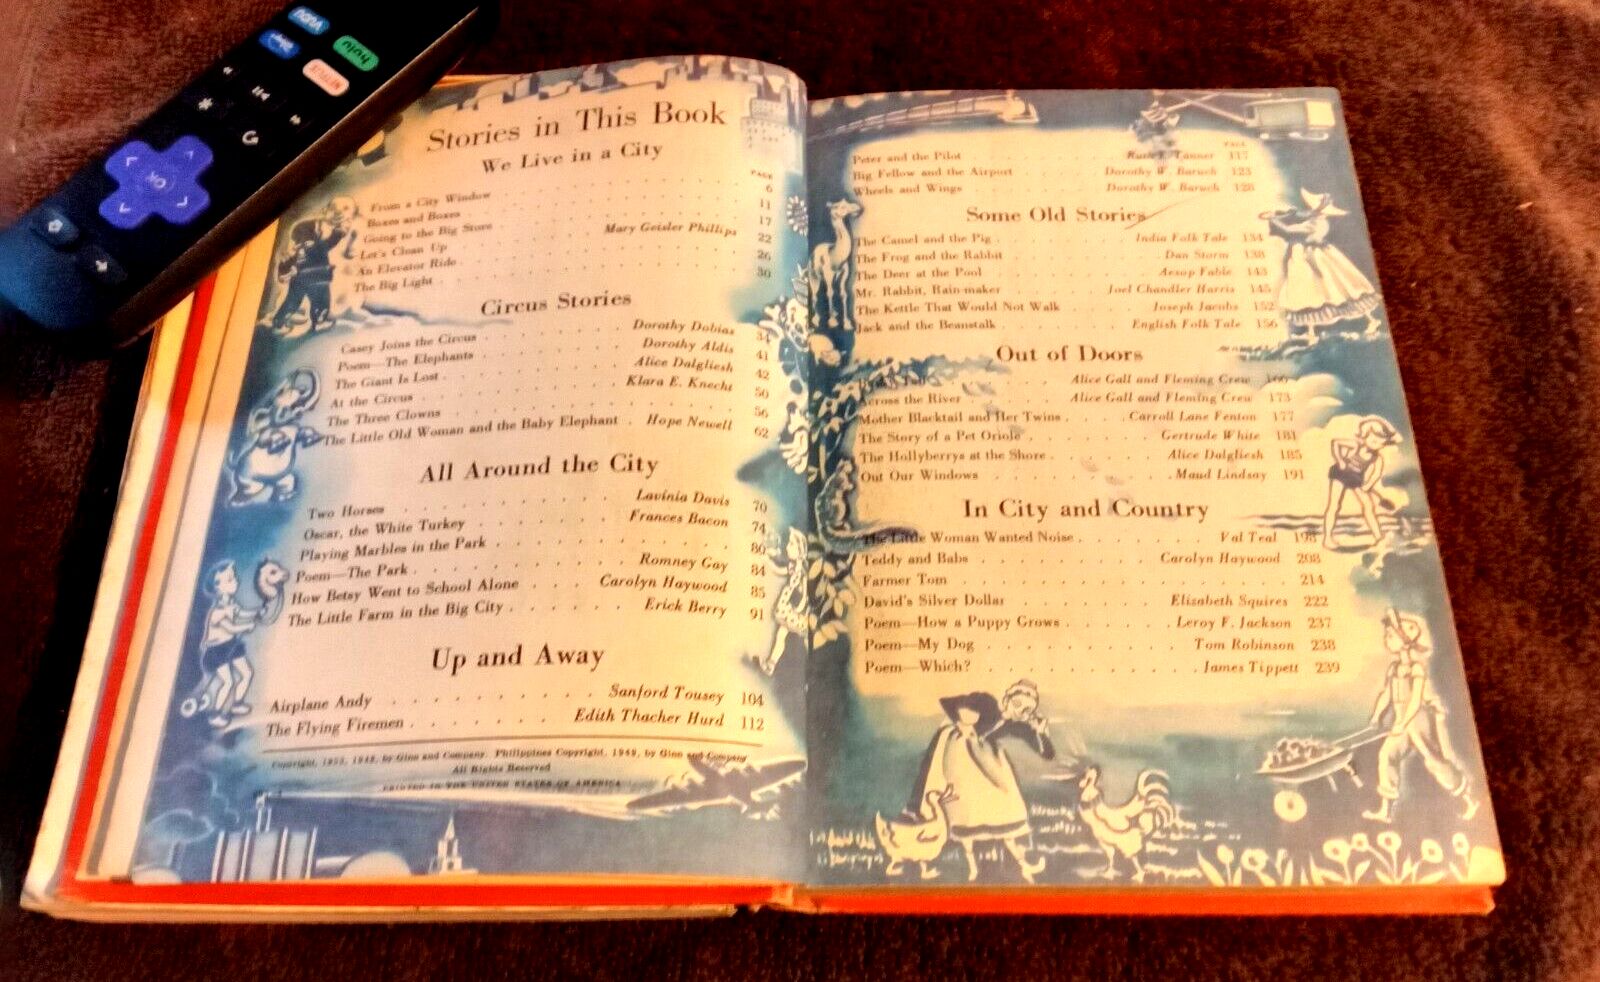 vudu
hulu
NETFLIX
OK
Stories in This Book
We Live in a City
PAGE
From a City Window . . . 6
Boxes and Boxes . . . 11
Going to the Big Store . . . 17
Let's Clean Up . . . Mary Geisler Phillips 22
An Elevator Ride . . . 26
The Big Light . . . 30
Circus Stories
Casey Joins the Circus . . . Dorothy Dobias 34
Poem—The Elephants . . . Dorothy Aldis 41
The Giant Is Lost . . . Alice Dalgliesh 42
At the Circus . . . Klara E. Knecht 50
The Three Clowns . . . 56
The Little Old Woman and the Baby Elephant . Hope Newell 62
All Around the City
Two Horses . . . Lavinia Davis 70
Oscar, the White Turkey . . . Frances Bacon 74
Playing Marbles in the Park . . . 80
Poem—The Park . . . Romney Gay 84
How Betsy Went to School Alone . . . Carolyn Haywood 85
The Little Farm in the Big City . . . Erick Berry 91
Up and Away
Airplane Andy . . . Sanford Tousey 104
The Flying Firemen . . . Edith Thacher Hurd 112
Copyright, 1953, 1949, by Ginn and Company. Philippines Copyright, 1949, by Ginn and Company
All Rights Reserved
PRINTED IN THE UNITED STATES OF AMERICA
PAGE
Peter and the Pilot . . . Ruth E. Tanner 117
Big Fellow and the Airport . . . Dorothy W. Baruch 123
Wheels and Wings . . . Dorothy W. Baruch 128
Some Old Stories
The Camel and the Pig . . . India Folk Tale 134
The Frog and the Rabbit . . . Dan Storm 138
The Deer at the Pool . . . Aesop Fable 143
Mr. Rabbit, Rain-maker . . . Joel Chandler Harris 145
The Kettle That Would Not Walk . . . Joseph Jacobs 152
Jack and the Beanstalk . . . English Folk Tale 156
Out of Doors
. . . Alice Gall and Fleming Crew 166
Across the River . . . Alice Gall and Fleming Crew 173
Mother Blacktail and Her Twins . . . Carroll Lane Fenton 177
The Story of a Pet Oriole . . . Gertrude White 181
The Hollyberrys at the Shore . . . Alice Dalgliesh 185
Out Our Windows . . . Maud Lindsay 191
In City and Country
The Little Woman Wanted Noise . . . Val Teal 198
Teddy and Babs . . . Carolyn Haywood 208
Farmer Tom . . . 214
David's Silver Dollar . . . Elizabeth Squires 222
Poem—How a Puppy Grows . . . Leroy F. Jackson 237
Poem—My Dog . . . Tom Robinson 238
Poem—Which? . . . James Tippett 239